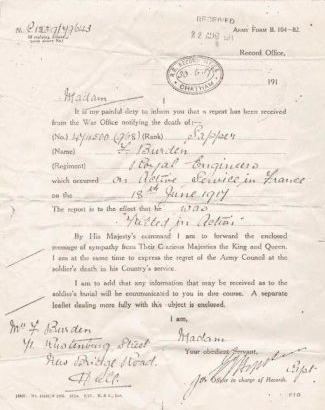 RECEIVED
ARMY FORM B. 104—82.
No.
(If replying, please
quote above No.)
Record Office,
R.E. RECORD OFFICE
CHATHAM
191
Madam
It is my painful duty to inform you that a report has been received
from the War Office notifying the death of:—
(No.) (Rank) Sapper
(Name) F Burden
(Regiment) Royal Engineers
which occurred on Active Service in France
on the 18th June 1917
The report is to the effect that he was
"Killed in Action"
By His Majesty's command I am to forward the enclosed
message of sympathy from Their Gracious Majesties the King and Queen.
I am at the same time to express the regret of the Army Council at the
soldier's death in his Country's service.
I am to add that any information that may be received as to the
soldier's burial will be communicated to you in due course. A separate
leaflet dealing more fully with this subject is enclosed.
I am,
Madam
Your obedient Servant,
Mrs F Burden
71 Rustenburg Street
New Bridge Road
Hull
Capt
for Officer in charge of Records.
P.T.O.